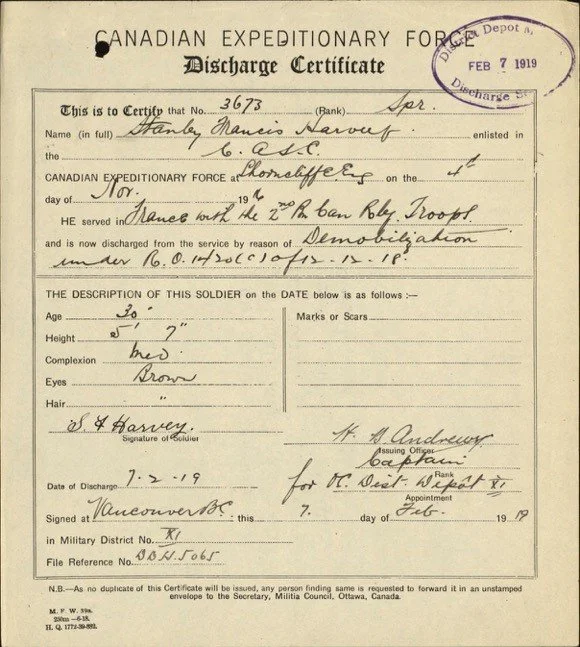 CANADIAN EXPEDITIONARY FORCE
Discharge Certificate
District Depot
FEB 7 1919
Discharge
This is to Certify that No. 3673 (Rank) Spr.
Name (in full) Stanley Francis Harvey enlisted in
the C.A.S.C.
CANADIAN EXPEDITIONARY FORCE at Shorncliffe Eng on the 4th
day of Nov. 1916
HE served in France with the 2nd Bn Can Rly. Troops
and is now discharged from the service by reason of Demobilization
under R.O. 1420(c) of 12-12-18.
THE DESCRIPTION OF THIS SOLDIER on the DATE below is as follows :—
Age 30
Height 5' 7"
Complexion Med.
Eyes Brown
Hair "
Marks or Scars
S. F Harvey.
Signature of Soldier
H. G. Andrews
Issuing Officer
Captain
Rank
for OC. Dist. Depôt XI
Appointment
Date of Discharge 7-2-19
Signed at Vancouver B.C. this 7. day of Feb. 1919
in Military District No. XI
File Reference No. DD H.5065
N.B.—As no duplicate of this Certificate will be issued, any person finding same is requested to forward it in an unstamped
envelope to the Secretary, Militia Council, Ottawa, Canada.
M. F. W. 39a.
250m—6-18.
H. Q. 1772-39-882.